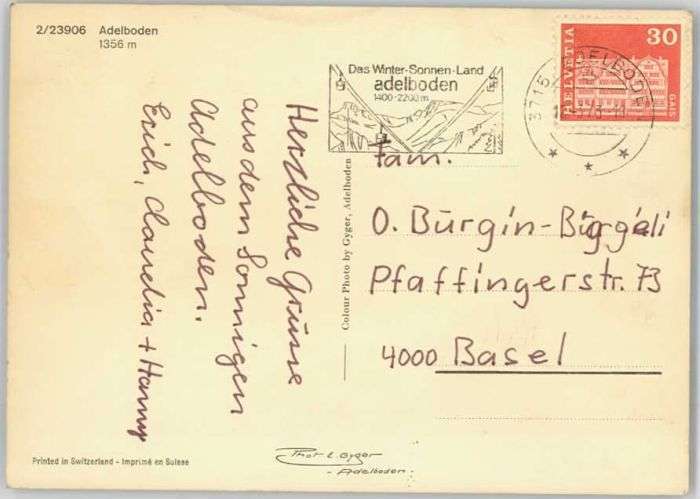 2/23906 Adelboden
1356 m
Herzliche Grüsse
aus dem Sonnigen
Adelboden.
Erich, Claudia + Hanny
Printed in Switzerland - Imprimé en Suisse
Colour Photo by Gyger, Adelboden
Phot E. Gyger
- Adelboden -
Das Winter-Sonnen-Land
adelboden
1400-2200m
3715 ADELBODEN
HELVETIA
30
GAIS
Fam.
O. Bürgin-
Pfaffingerstr. 73
4000 Basel